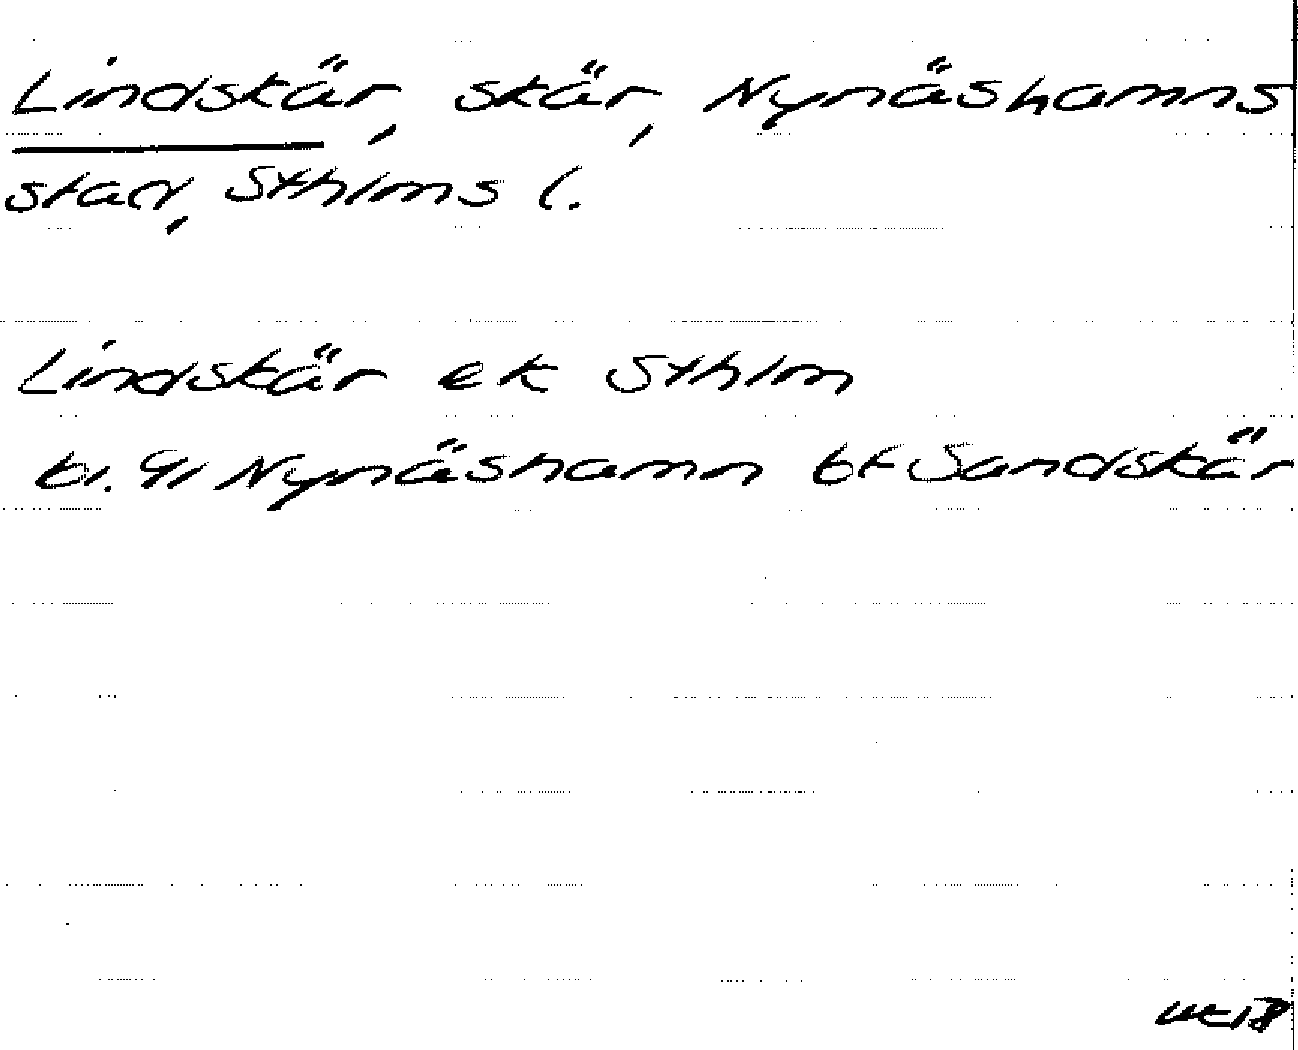 Lindskär, skär, Nynäshamns
stad, Sthlms l.
Lindskär ek Sthlm
bl. 91 Nynäshamn bf Sandskär